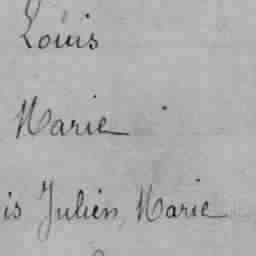 Louis
Marie
is Julien Marie